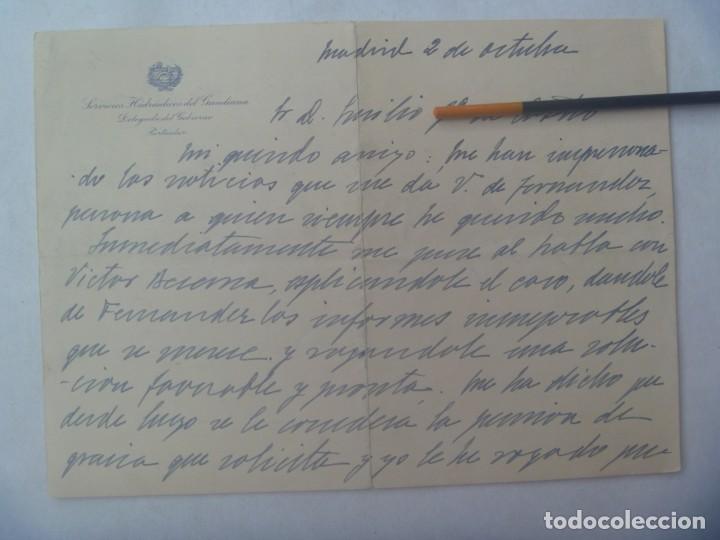 Madrid 2 de octubre
Servicios Hidráulicos del Guadiana
Delegado del Gobierno
Particular
Sr D. Emilio
Mi querido amigo: Me han impresiona-
do las noticias que me da V. de Fernandez,
persona a quien siempre he querido mucho.
Inmediatamente me puse al habla con
Victor explicandole el caso, dandole
de Fernandez los informes inmejorables
que se merece y rogandole una solu-
-cion favorable y pronta. Me ha dicho que
desde luego se le concederá la pension de
gracia que solicita y yo le he rogado que
todocoleccion.net